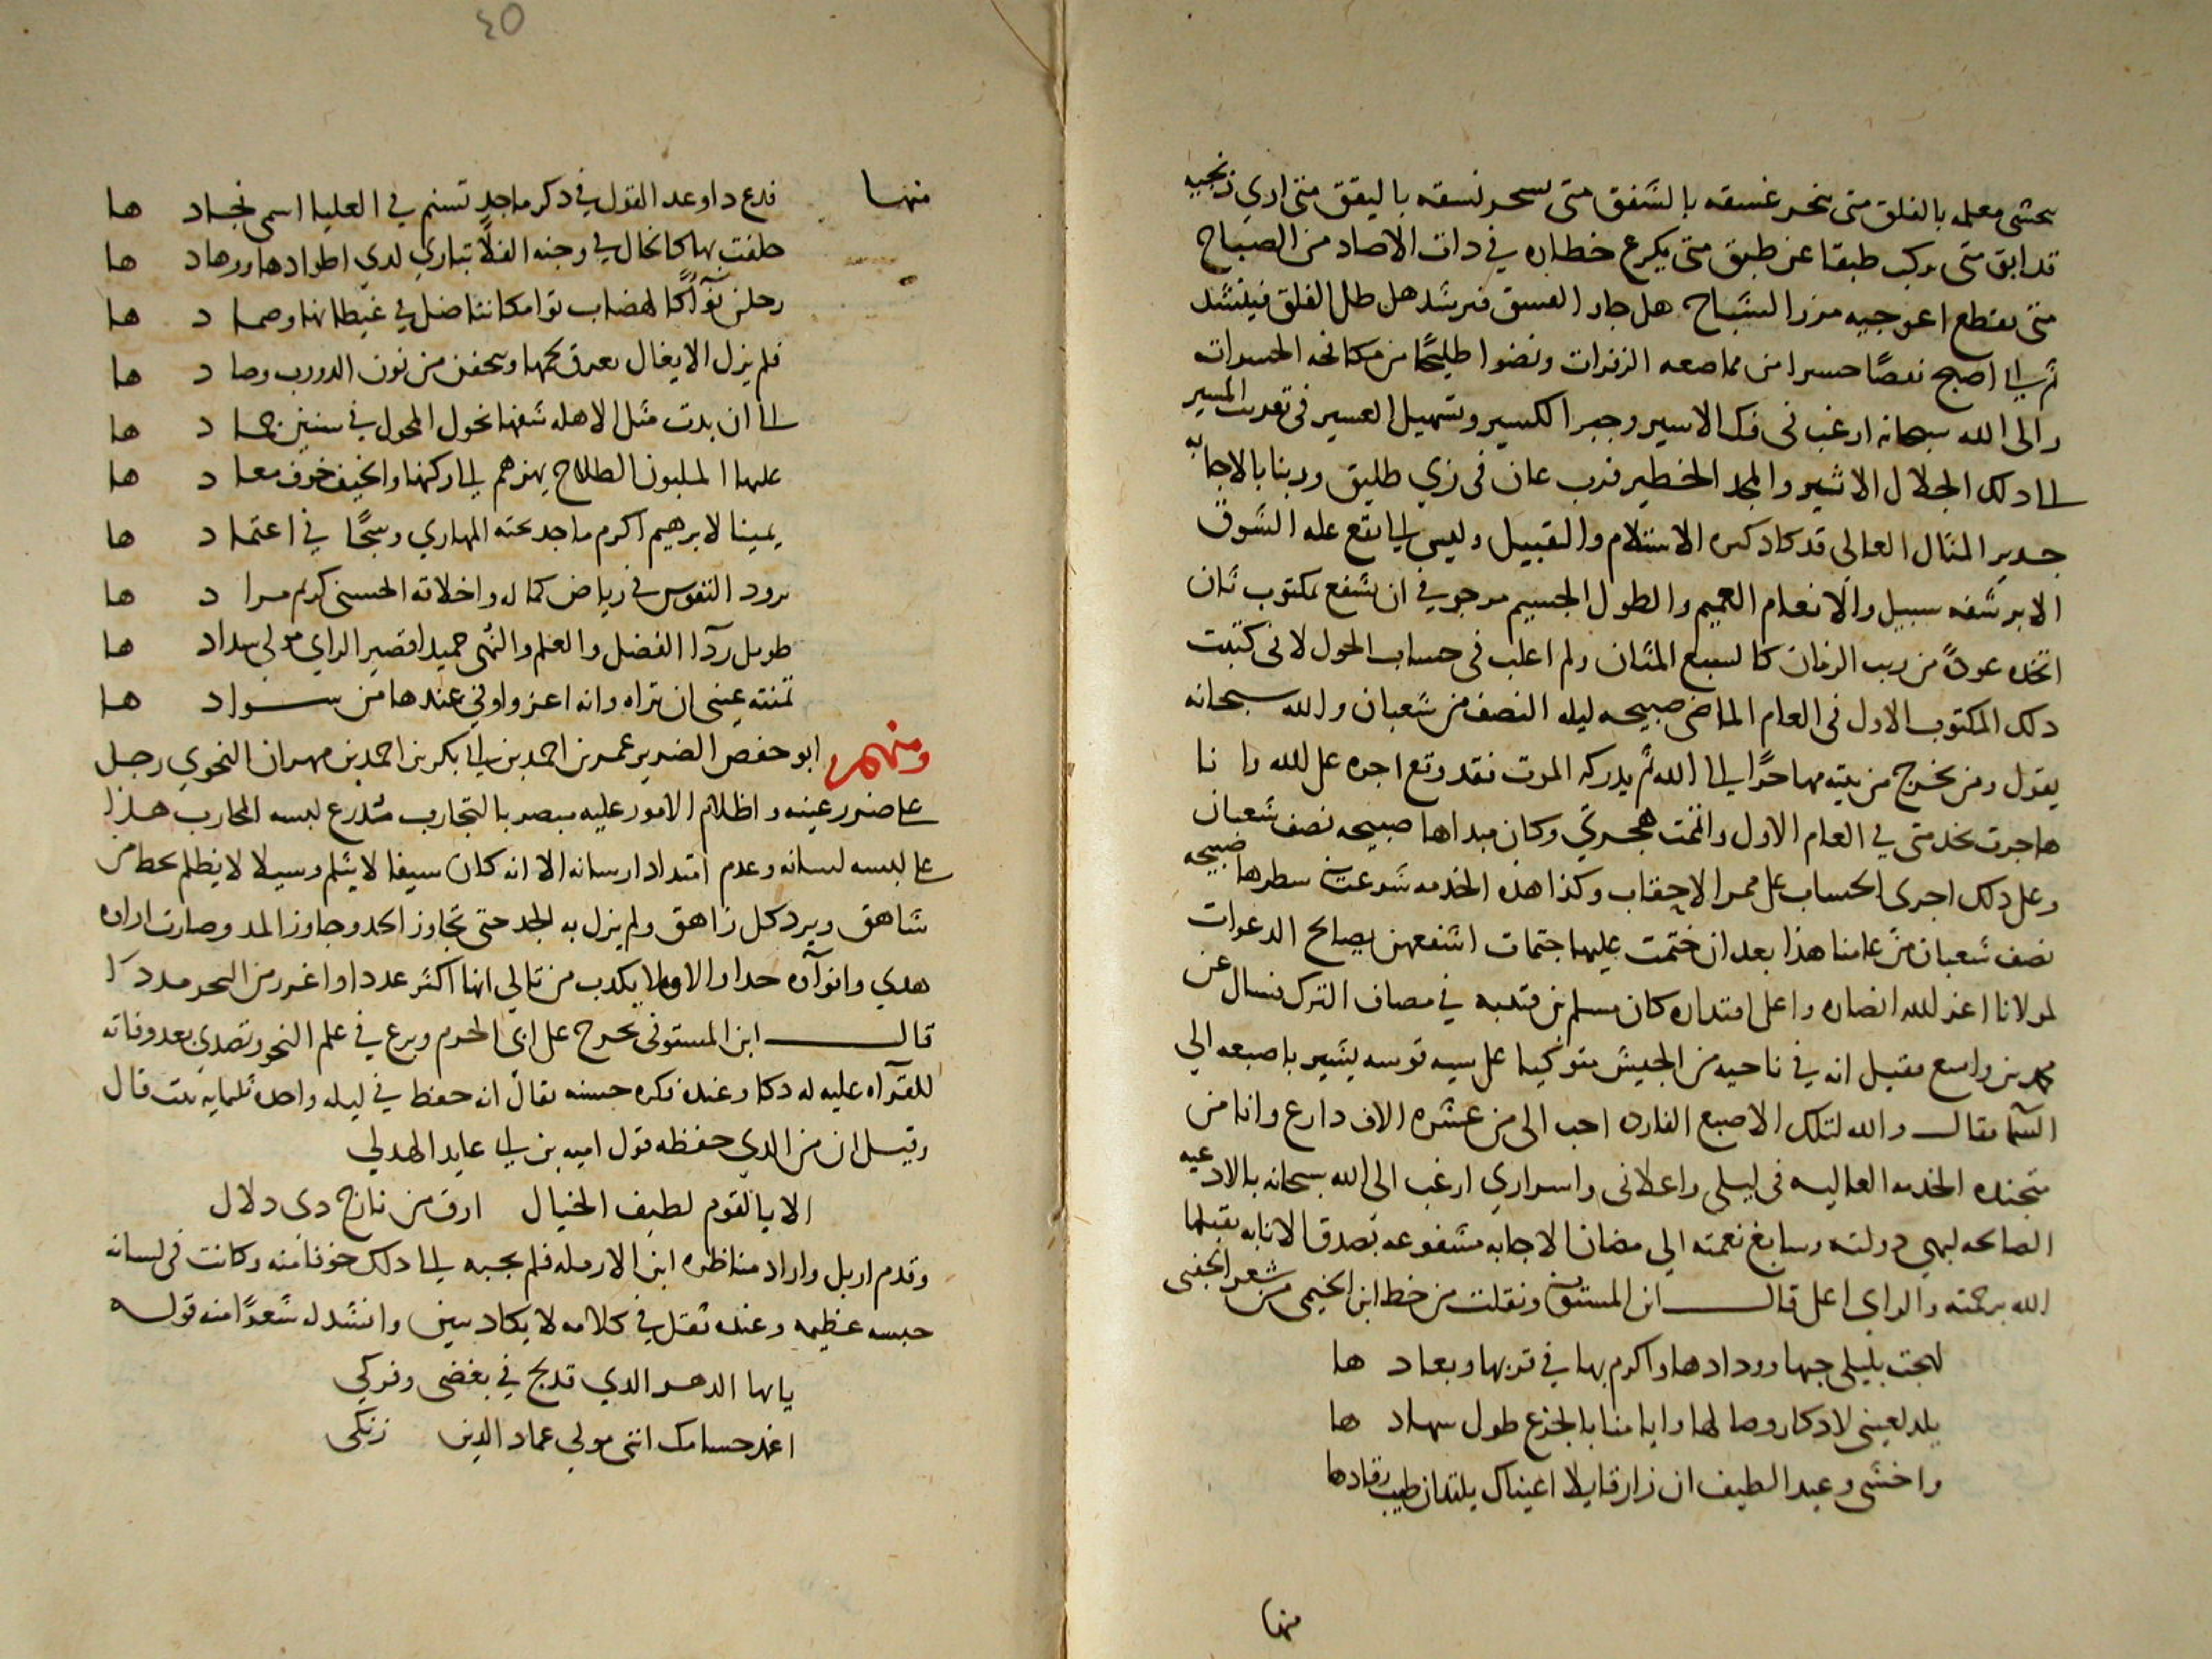 بالفلق متى بالشفق متى نسقه باليقق متى ارى نجيبه
قد ابق متى يركب طبقا عن طبق متى يكرع خطابه في ذات الاصاد من الصباح
متى يقطع من السباح هل جار الغسق فيرشد هل طل الفلق فينشد
ثم اني اصبح حسرا من الزفرات ونضوا طليحا من مكافحه الحسرات
والى الله سبحانه ارغب في فك الاسير وجبر الكسير وتسهيل العسير في المسير
الى ذلك الجلال الاثير والمجد الخطير فرب عان في زي طليق وربنا بالاجابه
جدير المثال العالى قد كاد الاستلام والتقبيل وليس الى نقع غله الشوق
الا برشفه سبيل والانعام العميم والطول الجسيم مرجو في ان يشفع بمكتوب ثان
اتخذه عوذة من ريب الزمان كالسبع المثان ولم اغلب في حساب الحول لانى كتبت
ذلك المكتوب الاول في العام الماضى صبيحه ليله النصف من شعبان والله سبحانه
يقول ومن يخرج من بيته مهاجرا الى الله ثم يدركه الموت فقد وقع اجره على الله وانا
هاجرت بخدمتى في العام الاول واتممت هجرتى وكان مبداها صبيحه نصف شعبان
وعلى ذلك اجرى الحساب على ممر الاحقاب وكذا هذه الخدمه شرعت في سطرها صبيحه
نصف شعبان من عامنا هذا بعد ان ختمت عليها ختمات اشفعهن بصالح الدعوات
لمولانا اعز الله انصاره واعلى اقتداره كان مسلم بن قتيبه في مصاف الترك فسال عن
محمد بن واسع فقيل انه في ناحيه من الجيش متوكيا على سيه قوسه يشير باصبعه الى
السما فقال والله لتلك الاصبع الفارده احب الى من عشره الاف دارع وانا من
متجنده الخدمه العاليه في ليلى واعلانى واسرارى ارغب الى الله سبحانه بالادعيه
الصالحه لبهى دولته وسابغ نعمته الى مضان الاجابه مشفوعه بصدق الانابه تقبلها
الله برحمته والراى اعلى قال ابن المستوفى ونقلت من خط ابن الخيمى من شعر الحنفى
لهجت بليلى حبها وودادها واكرم بها في قربها وبعادها
يلذ لعينى لادكار وصالها وايامنا بالجزع طول سهادها
واخشى وعيد الطيف ان زار قايلا اعيناك يلتذان طيب رقادها
منها
٤٥
منها فدع ذا وعد القول في ذكر ماجد تسنم في العليا اسمى نجادها
حلفت بها كالخال في وجنه الفلا تبارى لدى اطوادها ووهادها
رحلن كالهضاب توامكا تناضل في غيطانها وصمادها
فلم يزل الايغال يعرق لحمها من نون الدروب وصادها
الى ان بدت مثل الاهله شفها نحول المحول في سنين جمادها
عليها الملبون الطلاح يهزهم الى ركنها والخيف خوف معادها
يمينا لابرهيم اكرم ماجد نحته المهارى وسجا في اعتمادها
يرود النفوس في رياض كماله واخلاقه الحسنى كريم مرادها
طويل ردا الفضل والعلم والنهى حميدا قصير الراى مولى سدادها
تمنته عينى ان تراه وانه اعز واوفى عندها من سوادها
ومنهم ابو حفص الضرير عمر بن احمد بن ابى بكر بن احمد بن مهران النحوى رجل
على ضرر عينه واظلام الامور عليه مبصر بالتجارب متدرع لبسه المحارب هذا
على لبسه لسانه وعدم امتداد ارسانه الا انه كان سيفا لا يثلم وسيلا لا يظلم يحط من
شاهق ويرد كل زاهق ولم يزل به الجد حتى تجاوز الحد وجاوز المد وصارت اراه
هدى وانواه جدا والاولا يكذب من تالى انها اكثر عددا واغزر من البحر مددا
قال ابن المستوفى تخرج على ابى الحرم وبرع في علم النحو وتصدى بعد وفاته
للقراه عليه له ذكا وعنده فكره حسنه يقال انه حفظ في ليله واحده ثلمايه بيت قال
وقيل ان من الذى حفظه قول اميه بن ابى عايد الهذلى
الا يا لقوم لطيف الخيال ارق من نازح ذى دلال
وقدم اربل واراد مناظره ابن الارمله فلم يجبه الى ذلك خوفا منه وكانت في لسانه
حبسه عظيمه وعنده ثقل في كلامه لا يكاد يبين وانشد له شعرا منه قوله
يا ايها الدهر الذى قد لج في بغضى وفركى
اغمد حسامك اننى مولى عماد الدين زنكى